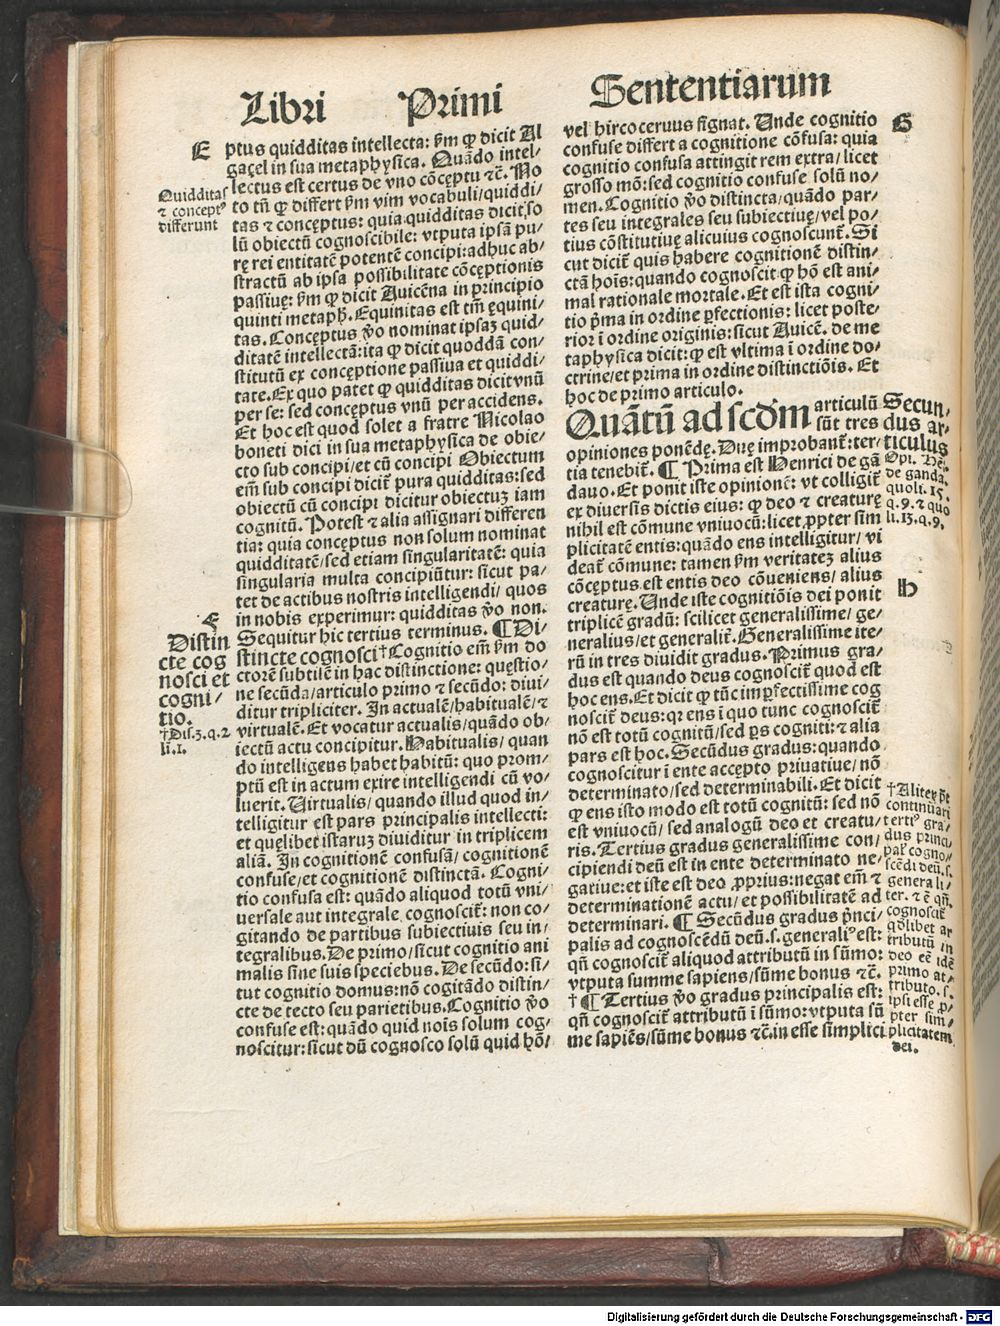 Libri Primi Sententiarum
E
ptus quidditas intellecta: ẜm ꝙ dicit Al
gaçel in sua metaphysica. Quãdo intel/
lectus est certus de vno cõcęptu ⁊c̃. No
to tñ ꝙ differt ẜm vim vocabuli/quiddi/
tas ⁊ conceptus: quia quidditas dicit so
lũ obiectũ cognoscibile: vtputa ipsã pu/
rę rei entitatẽ potentẽ concipi: adhuc ab/
stractũ ab ipsa possibilitate cõcęptionis
passiuę: ẜm ꝙ dicit Auicẽna in principio
quinti metapḣ. Equinitas est tm̃ ęquini/
tas. Concęptus ṽo nominat ipsaꝫ quid/
ditatẽ intellectã: ita ꝙ dicit quoddã con/
stitutũ ex concęptione passiua et quiddi/
tate. Ex quo patet ꝙ quidditas dicit vnũ
per se: sed concęptus vnũ per accidens.
Et hoc est quod solet a fratre Nicolao
boneti dici in sua metaphysica de obie/
cto sub concipi/et cũ concipi Obiectum
em̃ sub concipi dicit̃ pura quidditas: sed
obiectũ cũ concipi dicitur obiectuꝫ iam
cognitũ. Potest ⁊ alia assignari differen
tia: quia concęptus non solum nominat
quidditatẽ/sed etiam singularitatẽ: quia
singularia multa concipiũtur: sicut pa/
tet de actibus nostris intelligendi/ quos
in nobis experimur: quidditas ṽo non.
Sequitur hic tertius terminus. ¶ Di/
stincte cognosci † Cognitio em̃ ẜm do
ctorẽ subtilẽ in hac distinctione: quęstio/
ne secũda/articulo primo ⁊ secũdo: diui/
ditur tripliciter. In actualẽ/habitualẽ/ ⁊
virtualẽ. Et vocatur actualis/quãdo ob/
iectũ actu concipitur. Habitualis/ quan
do intelligens habet habitũ: quo prom/
ptũ est in actum exire intelligendi cũ vo/
luerit. Virtualis/ quando illud quod in/
telligitur est pars principalis intellecti:
et quęlibet istaruꝫ diuiditur in triplicem
aliã. In cognitionẽ confusã/ cognitionẽ
confuse/et cognitionẽ distinctã. Cogni/
tio confusa est: quãdo aliquod totũ vni/
uersale aut integrale cognoscit̃: non co/
gitando de partibus subiectiuis seu in/
tegralibus. De primo/sicut cognitio ani
malis sine suis speciebus. De secũdo: si/
tut cognitio domus: nõ cogitãdo distin/
cte de tecto seu parietibus. Cognitio ṽo
confuse est: quãdo quid noĩs solum cog/
noscitur: sicut dũ cognosco solũ quid hõ/
Quidditas
⁊ concept⁹
differunt
F
Distin
cte cog
nosci et
cogni/
tio.
† Dis. 3. q. 2
li. 1.
vel hircoceruus signat. Unde cognitio
confuse differt a cognitione cõfusa: quia
cognitio confusa attingit rem extra/ licet
grosso mõ: sed cognitio confuse solũ no/
men. Cognitio ṽo distincta/quãdo par/
tes seu integrales seu subiectiuę/vel po/
tius cõstitutiuę alicuius cognoscunt̃. Si
cut dicit̃ quis habere cognitionẽ distin/
ctã hoĩs: quando cognoscit ꝙ hõ est ani/
mal rationale mortale. Et est ista cogni/
tio p̃ma in ordine ꝑfectionis: licet poste/
rior ĩ ordine originis: sicut Auicẽ. de me
taphysica dicit: ꝙ est vltima ĩ ordine do/
ctrine/et prima in ordine distinctiõis. Et
hoc de primo articulo.
Quãtũ ad scdm articulũ
sũt tres
opiniones ponẽdę. Duę improbant̃: ter/
tia tenebit̃. ¶ Prima est Henrici de gã
dauo. Et ponit iste opinionẽ: vt colligit̃
ex diuersis dictis eius: ꝙ deo ⁊ creaturę
nihil est cõmune vniuocũ: licet ꝓpter sim
plicitatẽ entis: quãdo ens intelligitur/ vi
deat̃ cõmune: tamen ẜm veritateꝫ alius
cõcęptus est entis deo cõueniens/ alius
creaturę. Unde iste cognitiõis dei ponit
triplicẽ gradũ: scilicet generalissime/ ge/
neralius/et generalit̃. Generalissime ite/
rũ in tres diuidit gradus. Primus gra/
dus est quando deus cognoscit̃ quod est
hoc ens. Et dicit ꝙ tũc imꝑfectissime cog
noscit̃ deus: qꝛ ens ĩ quo tunc cognoscit̃
nõ est totũ cognitũ/sed ꝑs cogniti: ⁊ alia
pars est hoc. Secũdus gradus: quando
cognoscitur ĩ ente accępto priuatiue/ nõ
determinato/sed determinabili. Et dicit
ꝙ ens isto modo est totũ cognitũ: sed nõ
est vniuocũ/ sed analogũ deo et creatu/
ris. Tertius gradus generalissime con/
cipiendi deũ est in ente determinato ne/
gatiue: et iste est deo ꝓprius: negat em̃ ⁊
determinationẽ actu/ et possibilitatẽ ad
determinari. ¶ Secũdus gradus p̃nci/
palis ad cognoscẽdũ deũ. s. generali⁹ est:
qñ cognoscit̃ aliquod attributũ in sũmo:
vtputa summe sapiens/sũme bonus ⁊c̃.
† ¶ Tertius ṽo gradus principalis est:
qñ cognoscit̃ attributũ ĩ sũmo: vtputa sũ
me sapiẽs/sũme bonus ⁊c̃. in esse simplici
G
Secun/
dus ar/
ticulus
Opi. Hẽi.
de ganda.
quoli. 15.
q. 9. ⁊ quo
li. 13. q. 9.
H
† Aliter p̃t
continuari
terti⁹ gra/
dus princi
pal̃ cogno/
scẽdi deũ. s.
generali/
ter. ⁊ ẽ qñ
cognoscit̃
qdlibet at
tributũ in
deo eẽ idẽ
primo at/
tributo. s.
ipsi esse ꝓ/
pter sim/
plicitatem
dei.
Digitalisierung gefördert durch die Deutsche Forschungsgemeinschaft - DFG